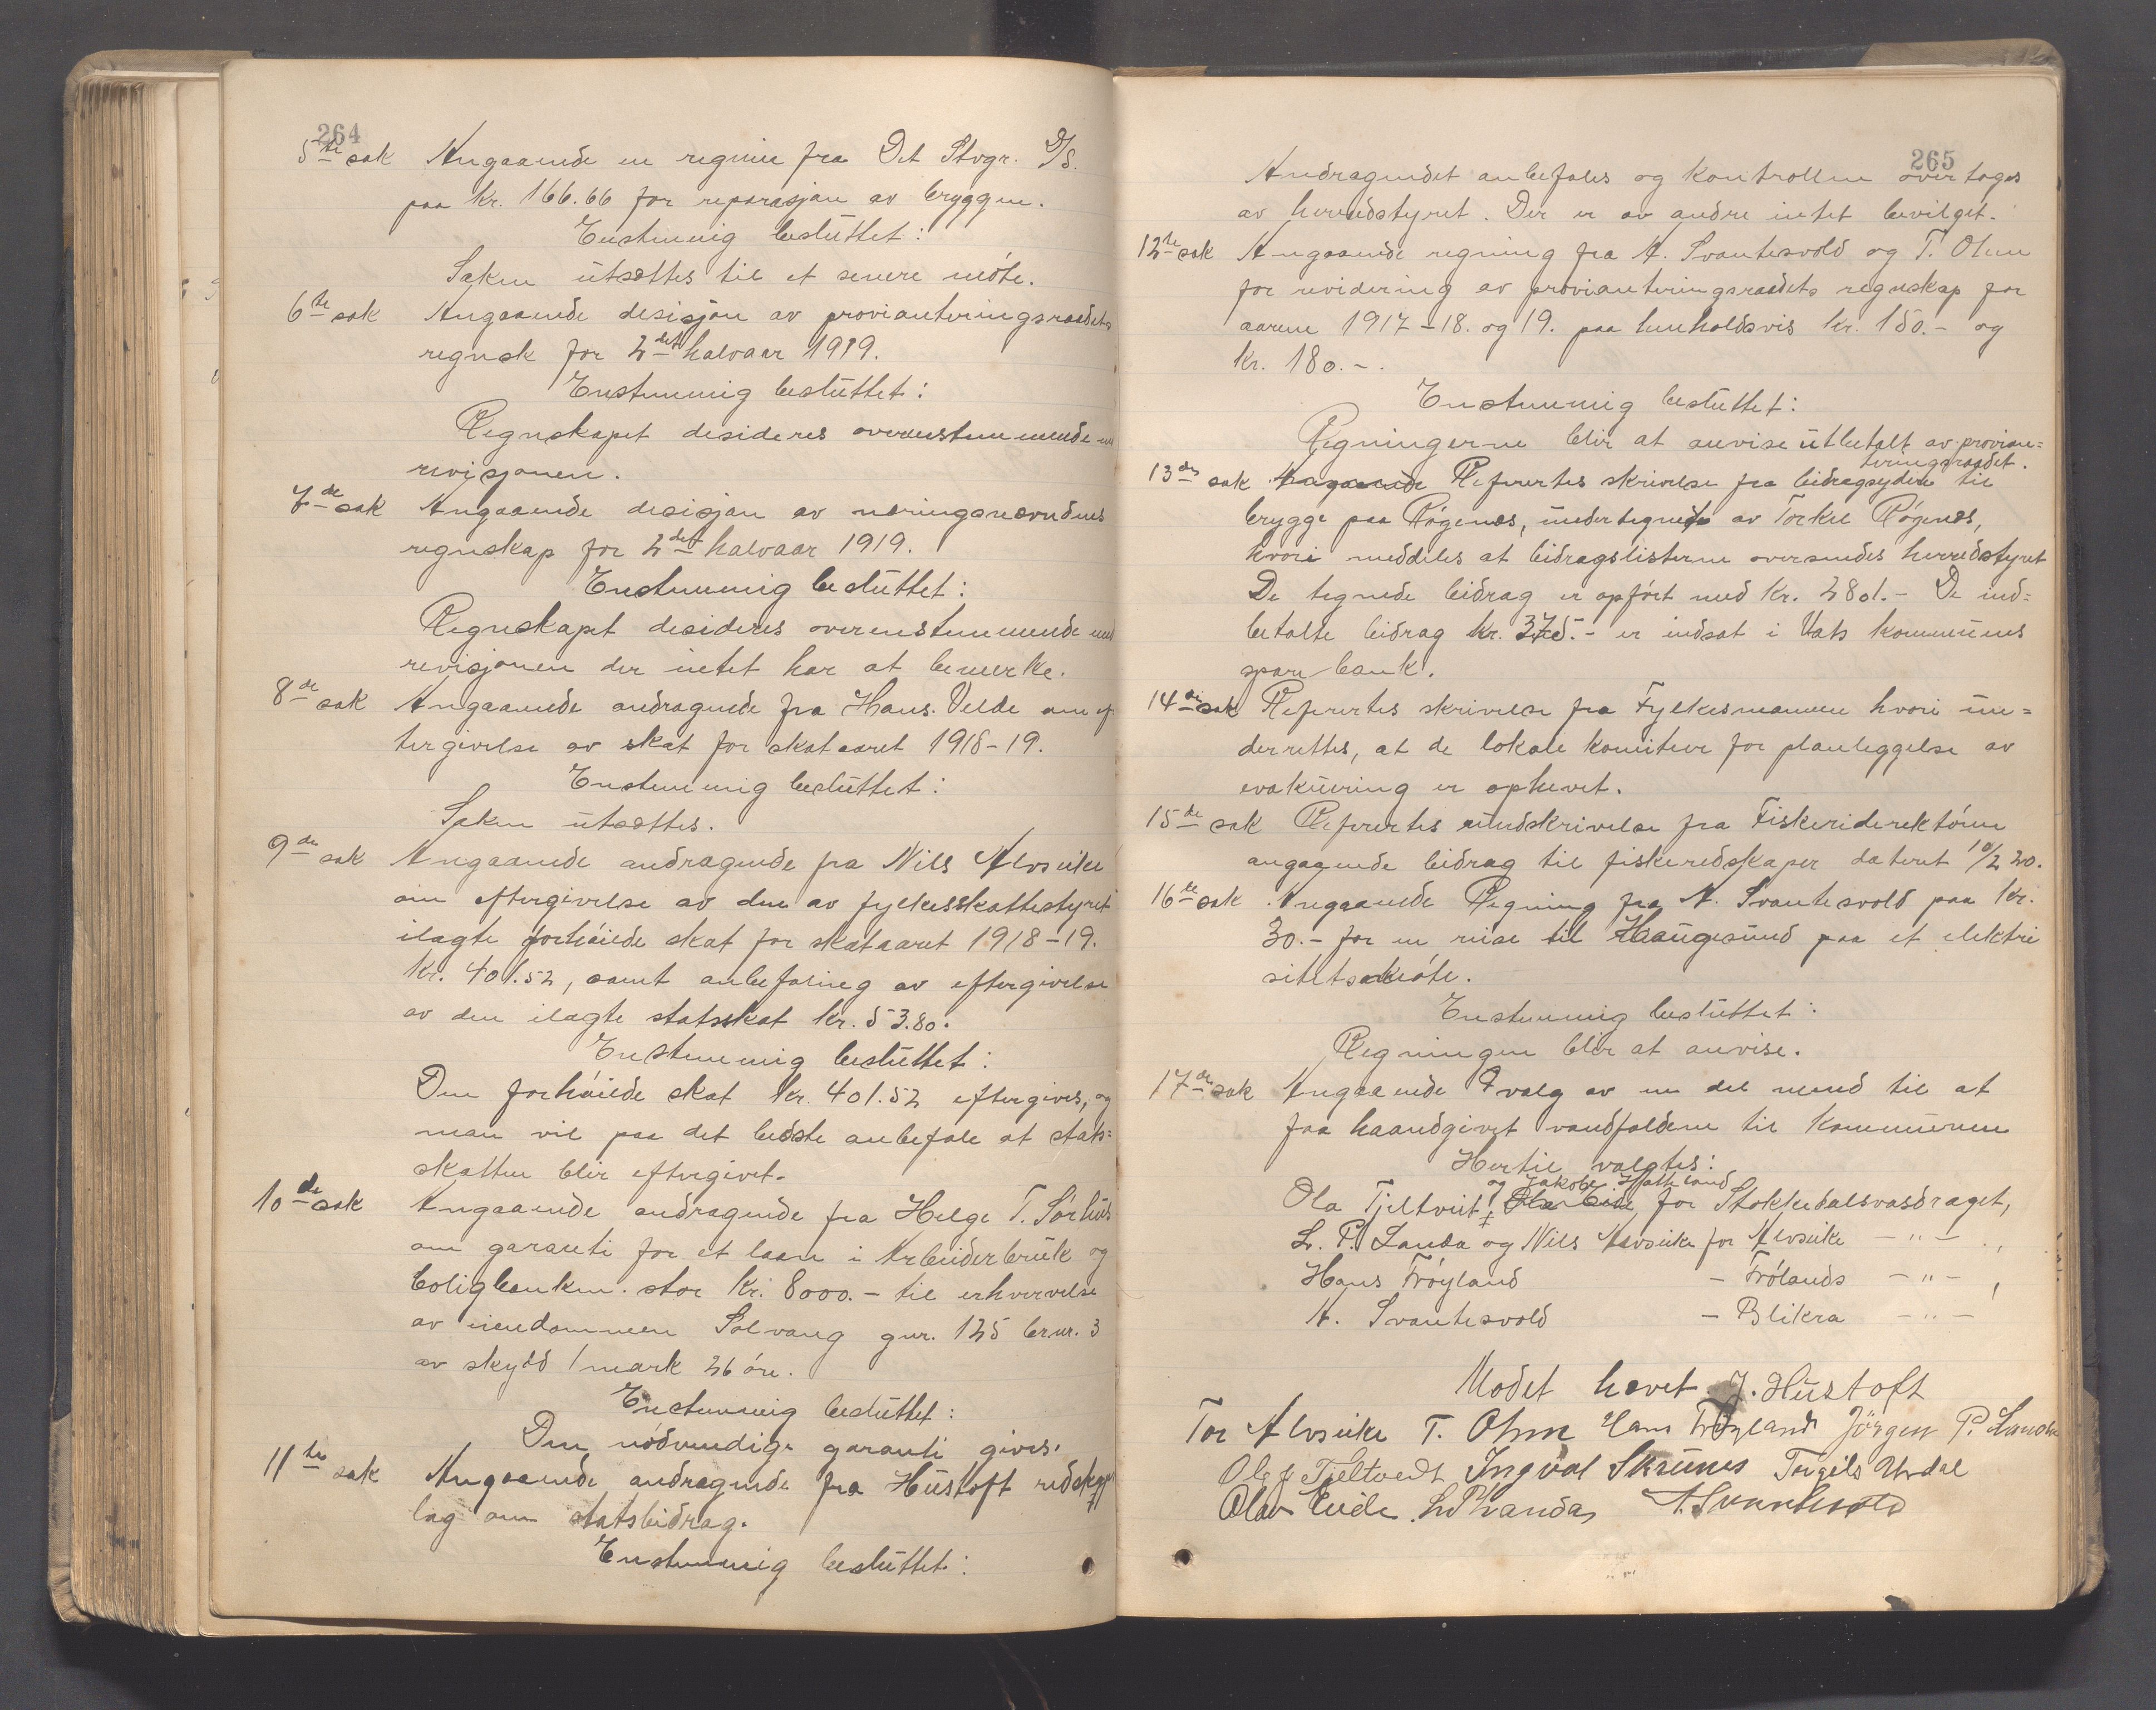 264
5te sak Angaaende en regning fra Det Stvgr. D/S.
paa kr. 166.66 for reparasjon av bryggen.
Enstemmig besluttet:
Saken utsættes til et senere møte.
6te sak Angaaende desisjon av provianteringsraadets
regnsk for 2det halvaar 1919.
Enstemmig besluttet:
Regnskapet desideres overensstemmende m
revisjonen.
7de sak Angaaende desisjon av næringsnevndens
regnskap for 2det halvaar 1919.
Enstemmig besluttet:
Regnskapet desideres overenstemmende med
revisjonen der intet har at bemerke.
8de sak Angaaende andragende fra Hans Velde om ef
tergivelse av skat for skataaret 1918-19.
Enstemmig besluttet:
Saken utsættes.
9de sak Angaaende andragende fra Nils Alvseike
om eftergivelse av den av fylkesskattestyret
ilagte forhøiede skat for skataaret 1918-19.
kr. 401.52, samt anbefaling av eftergivelse
av den ilagte statsskat kr. 53.80.
Enstemmig besluttet:
Den forhøiede skat kr. 401.52 eftergives, og
man vil paa det bedste anbefale at stats=
skatten blir eftergivet.
10de sak Angaaende andragende fra Helge T. Sørhus
om garanti for et laan i Arbeiderbruk og
boligbanken stor kr. 8000.- til erhvervelse
av eiendommen Solvang gnr. 125 brnr. 3
av skyld 1 mark 26 øre.
Enstemmig besluttet:
Den nødvendige garanti gives.
11te sak Angaaende andragende fra Hustoft redskaps
lag om statsbidrag.
Enstemmig besluttet:
265
Andragendet anbefales og kontrollen overtages
av herredstyret. Der er av andre intet bevilget.
12te sak Angaaende regning fra A. Svantesvold og T. Ohm
for revidering av provianteringsraadets regnskap for
aarene 1917-18. og 19. paa henholdsvis kr. 150.- og
kr. 180.-.
Enstemmig besluttet:
Regningerne blir at anvise utbetalt av provian=
teringsraadet.
13de sak Angaaende Refertes skrivelse fra bidragsydere til
brygge paa Røgenes, undertegnede av Torkel Røgenes,
hvori meddeles at bidragslisterne oversendes herredstyret
De tegnede bidrag er opført med kr. 2801.- De ind=
betalte bidrag kr. 375.- er indsat i Vats kommunes
sparebank.
14de sak Refertes skrivelse fra Fylkesmannen hvori un=
derrettes, at de lokale komiteer for planleggelse av
evakuering er ophevet.
15de sak Refertes rundskrivelse fra Fiskeridirektøren
angaaende bidrag til fiskeredskaper dateret 10/2 20.
16te sak Angaaende Regning fra A. Svantesvold paa kr.
30.- for en reise til Haugesund paa et elektri
sitetsmøte.
Enstemmig besluttet:
Regningen blir at anvise.
17de sak Angaaende valg av en del mend til at
faa haandgivet vandfaldene til kommunen
Hertil valgtes:
og Jakob Hatteland
Ola Tjeltveit, Olav Eide, for Stokkedalsvasdraget,
L. P. Landa og Nils Alvseike for Alvseike - " - ,
Hans Frøyland - Frølands - " - ,
A. Svantesvold - Blikra - " -
Møtet hævet J. Hustoft
Tor Alvseike T. Ohm Hans Frøyland Jørgen P. Landa
Ole J Tjeltvedt Ingval Skeunes Torgils Urdal
Olav Eide L. P Landa, A. Svantesvold